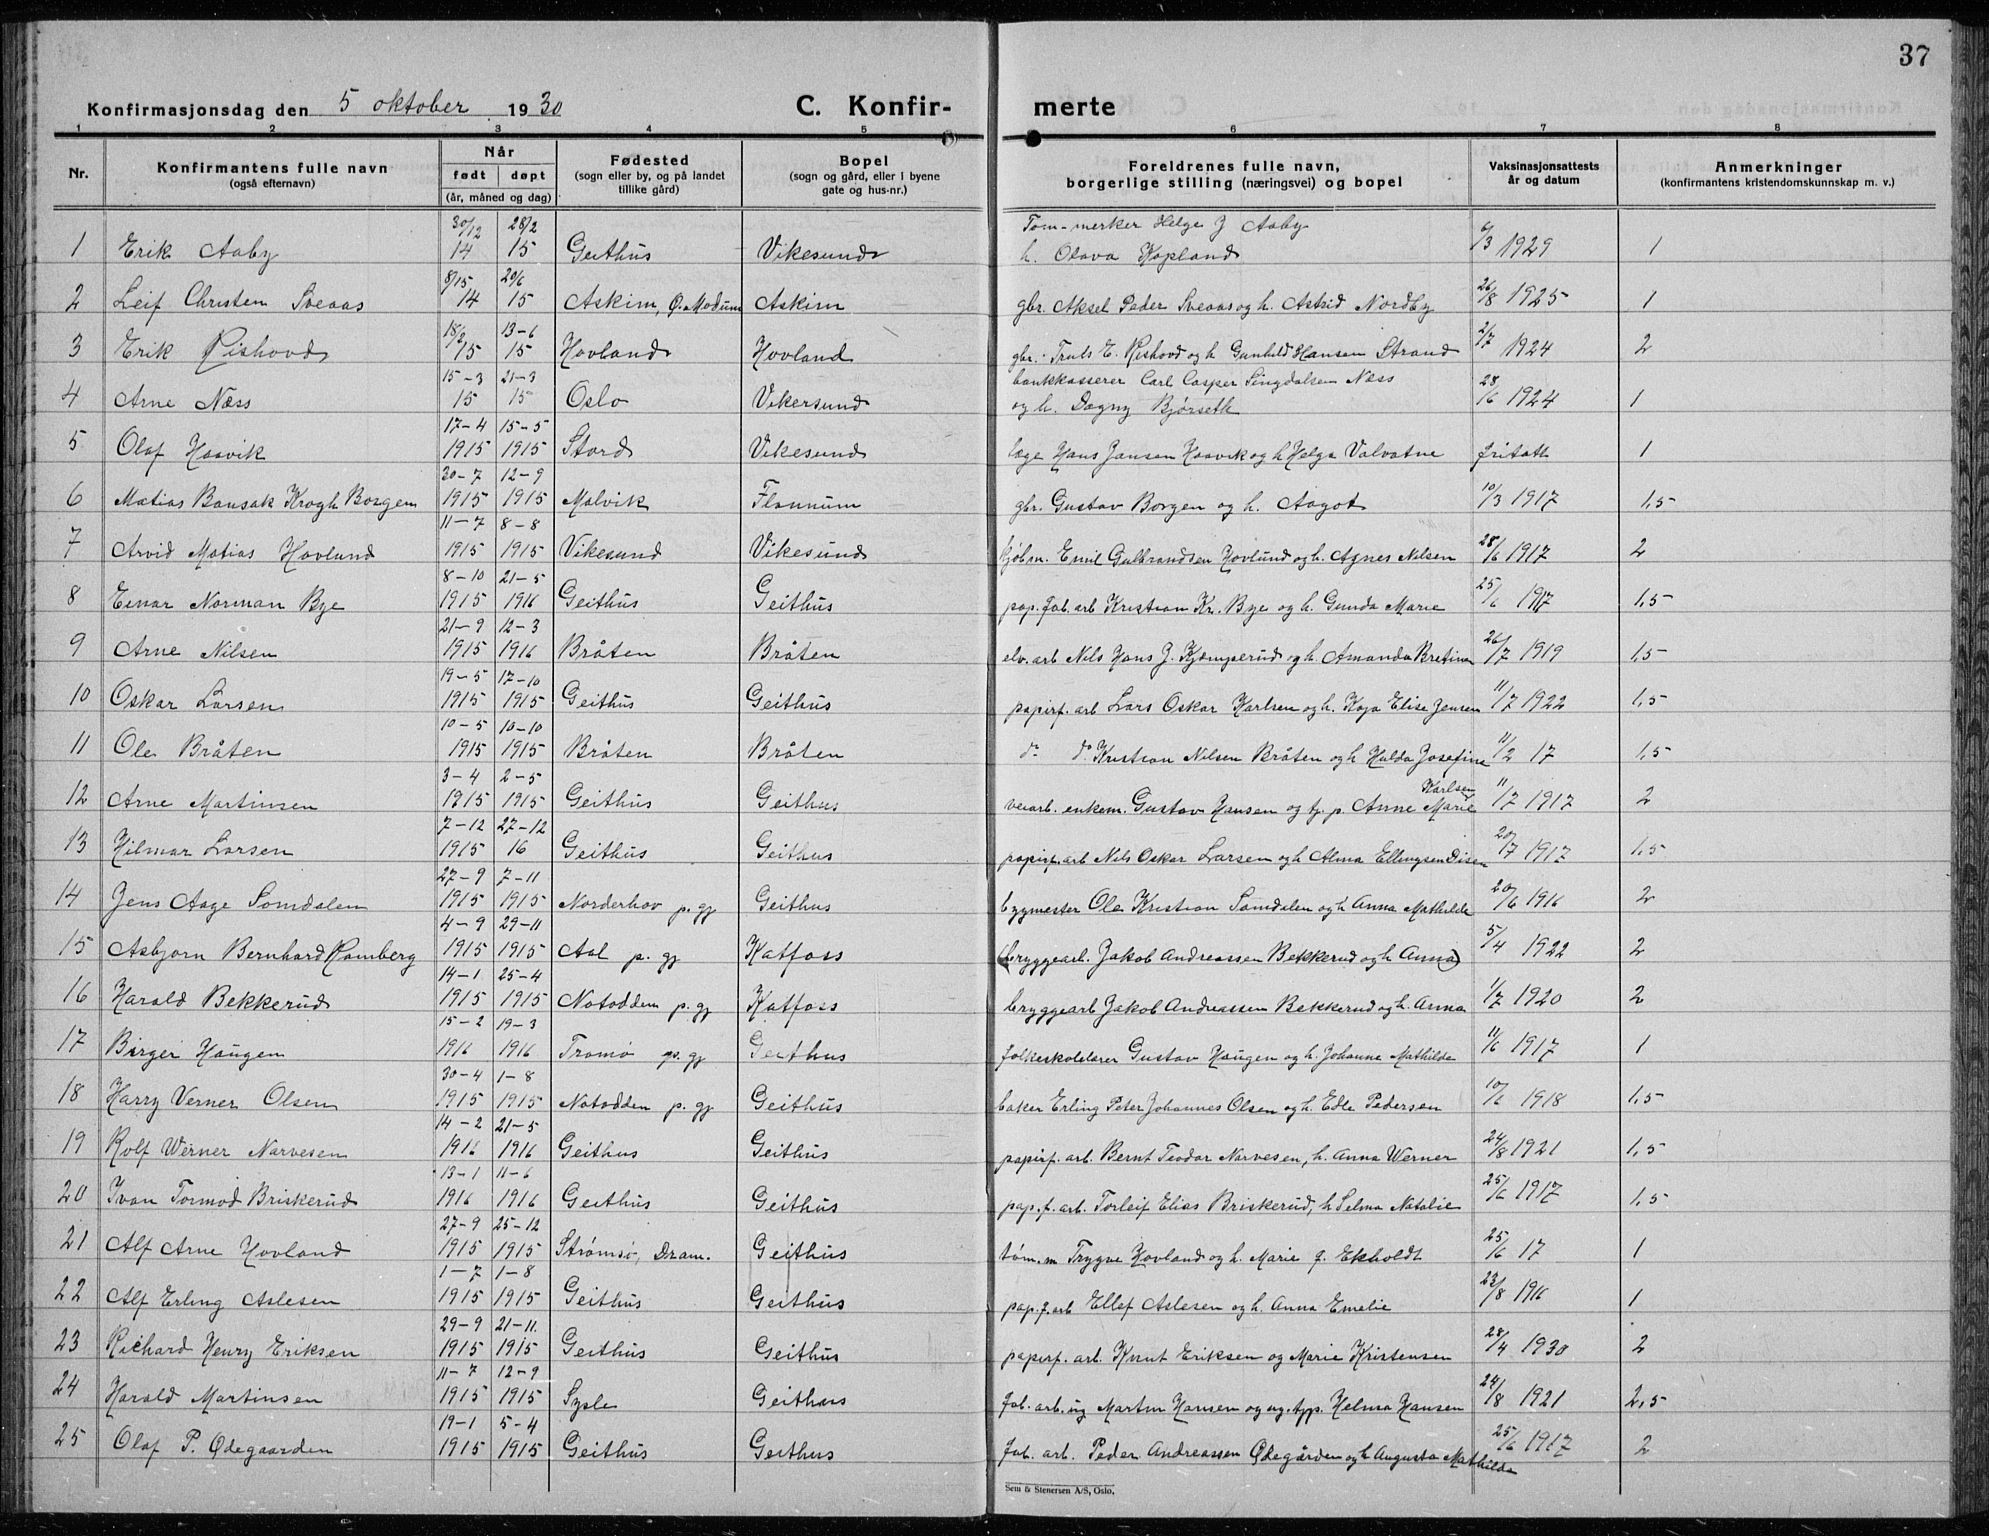 37
Konfirmasjonsdag den 5 oktober 1930 C. Konfir- merte
1 2 3 4 5 6 7 8
Nr. Konfirmantens fulle navn (også efternavn) Når født døpt (år, måned og dag) Fødested (sogn eller by, og på landet tillike gård) Bopel (sogn og gård, eller i byene gate og hus-nr.) Foreldrenes fulle navn, borgerlige stilling (næringsvei) og bopel Vaksinasjonsattests år og datum Anmerkninger (konfirmantens kristendomskunnskap m. v.)
1 Erik Aaby 30/12 14 28/2 15 Geithus Vikesund Tom-merker Helge J Aaby h. Olava Kopland 6/3 1929 1
2 Leif Christen Sveaas 8/15 14 20/6 15 Askim, Ø. Modum Askim gbr. Aksel Peder Sveaas og h. Astrid Nordby 26/8 1925 1
3 Erik Rishovd 18/2 15 13-6 15 Hovland Hovland gbr. Truls E. Rishovd og h Gunhild Hansen Strand 2/7 1924 2
4 Arne Næss 15-3 15 21-3 15 Oslo Vikersund bankkasserer Carl Casper Singdalsen Næss og h. Dagny Bjørseth 28/6 1924 1
5 Olaf Haavik 17-4 1915 15-5 1915 Stord Vikesund læge Hans Jansen Haavik og h Helga Valvatne fritatt 1
6 Matias Bonsak Krogh Borgen 30-7 1915 12-9 1915 Malvik Flannum gbr. Gustav Borgen og h. Aagot 10/3 1917 1,5
7 Arvid Matias Hovlund 11-7 1915 8-8 1915 Vikesund Vikesund kjøbm. Emil Gulbrandsen Hovlund og h. Agnes Nilsen 28/6 1917 2
8 Einar Norman Bye 8-10 1915 21-5 1916 Geithus Geithus pap. fab. arb Kristian Kr. Bye og h. Gunda Marie 25/6 1917 1,5
9 Arne Nilsen 21-9 1915 12-3 1916 Bråten Bråten elv. arb Nils Hans J. Kjemperud og h. Amanda Bretine 26/7 1919 1,5
10 Oskar Larsen 19-5 1915 17-10 1915 Geithus Geithus papirf. arb Lars Oskar Karlsen og h. Kaja Elise Jensen 11/7 1922 1,5
11 Ole Bråten 10-5 1915 10-10 1915 Bråten Bråten do do Kristian Nilsen Bråten og h Hulda Josefine 11/2 17 1,5
12 Arne Martinsen 3-4 1915 2-5 1915 Geithus Geithus veiarb. enkem. Gustav Hansen og tj. p. Anne Marie Karlsen 11/7 1917 2
13 Hilmar Larsen 7-12 1915 27-12 16 Geithus Geithus papirf. arb Nils Oskar Larsen og h Alma Ellingsen Disen 20/7 1917 1,5
14 Jens Aage Somdalen 27-9 1915 7-11 1915 Norderhov p. gj Geithus bygmester Ole Kristian Somdalen og h Anna Mathilde 20/6 1916 2
15 Asbjørn Bernhard Ramberg 4-9 1915 29-11 1915 Aal p. gj Katfoss (bryggearb. Jakob Andreassen Bekkerud og h Anna) 5/4 1922 2
16 Harald Bekkerud 14-1 1915 25-4 1915 Notodden p. gj Katfoss bryggearb Jakob Andreassen Bekkerud og h. Anna 1/7 1920 2
17 Birger Haugen 15-2 1916 19-3 1916 Tromø p. gj Geithus folkeskolelærer Gustav Haugen og h. Johanne Mathilde 11/6 1917 1
18 Harry Verner Olsen 30-4 1915 1-8 1915 Notodden p. gj Geithus baker Erling Peter Johannes Olsen og h. Edle Pedersen 10/6 1918 1,5
19 Rolf Werner Narvesen 14-2 1916 21-5 1916 Geithus Geithus papirf. arb. Bernt Teodor Narvesen, h. Anna Werner 24/8 1921 1,5
20 Ivan Tormod Briskerud 13-1 1916 11-6 1916 Geithus Geithus pap. f. arb. Torleif Elias Briskerud, h Selma Natalie 25/6 1917 1,5
21 Alf Arne Hovland 27-9 1915 25-12 1915 Strømsø, Dram. Geithus tøm. m Trygve Hovland og h. Marie f. Ekholdt 25/6 17 1
22 Alf Erling Aslesen 1-7 1915 1-8 1915 Geithus Geithus pap. f. arb Ellef Aslesen og h. Anna Emelie 23/8 1916 1
23 Richard Henry Eriksen 29-9 1915 21-11. 1915 Geithus Geithus papirf. arb. Knut Eriksen og Marie Kristensen 28/4 1930 2
24 Harald Martinsen 11-7 1915 12-9 1915 Sysle Geithus fab. arb. ug Martin Hansen og ug. tpp. Helma Hansen 24/8 1921 2,5
25 Olaf P. Ødegaarden 19-1 1915 5-4 1915 Geithus Geithus fab. arb. Peder Andreassen Ødegården og h Augusta Mathilde 25/6 1917 2
Sem & Stenersen A/S, Oslo.